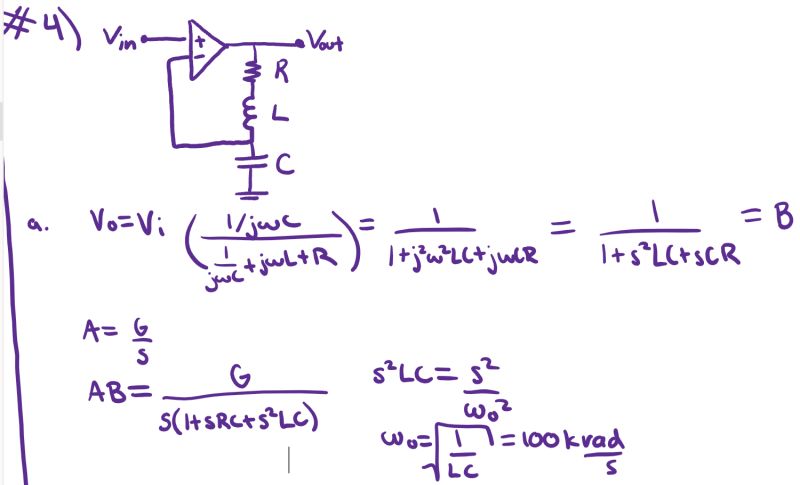 #4) Vin + - Vout
R
L
C
a. Vo=Vi ( (1/jωC) / (1/jωC + jωL + R) ) = 1 / (1+j²ω²LC+jωCR) = 1 / (1+s²LC+sCR) = B
A = G/s
AB = G / (s(1+sRC+s²LC))
s²LC = s²/ω₀²
ω₀ = √(1/LC) = 100 k rad/s